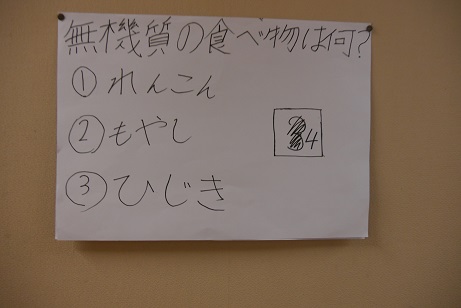 無機質の食べ物は何?
①れんこん
②もやし
4
③ひじき